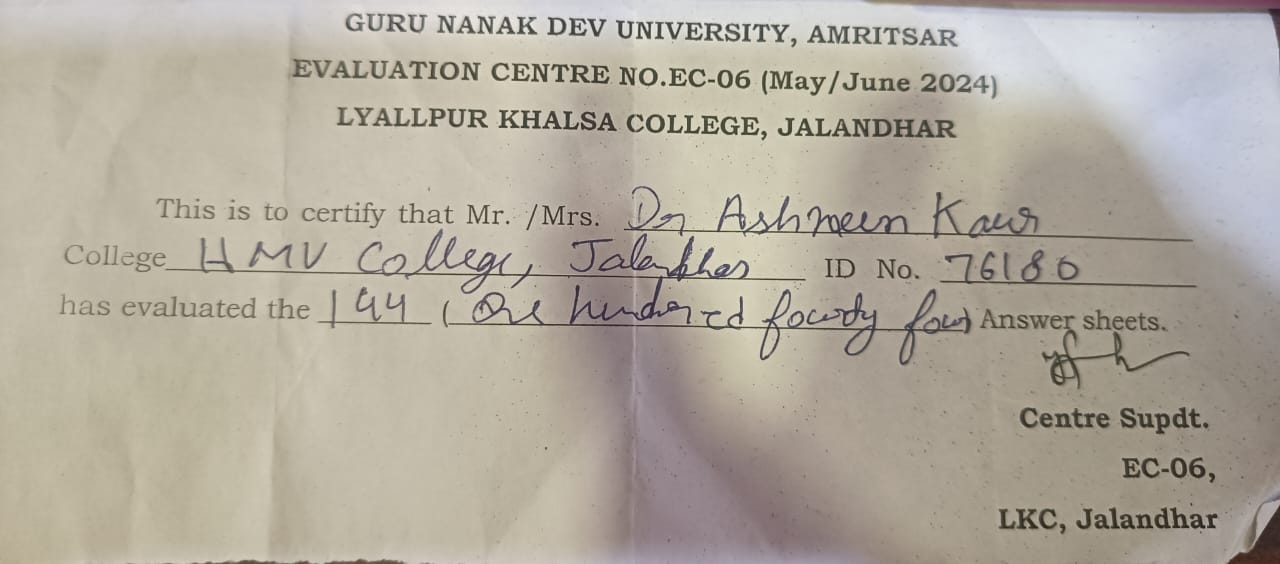 GURU NANAK DEV UNIVERSITY, AMRITSAR
EVALUATION CENTRE NO.EC-06 (May/June 2024)
LYALLPUR KHALSA COLLEGE, JALANDHAR
This is to certify that Mr. /Mrs. Dr Ashmeen Kaur
College HMV College, Jalandhar ID No. 76180
has evaluated the 144 (One hundred fourty four) Answer sheets.
Centre Supdt.
EC-06,
LKC, Jalandhar